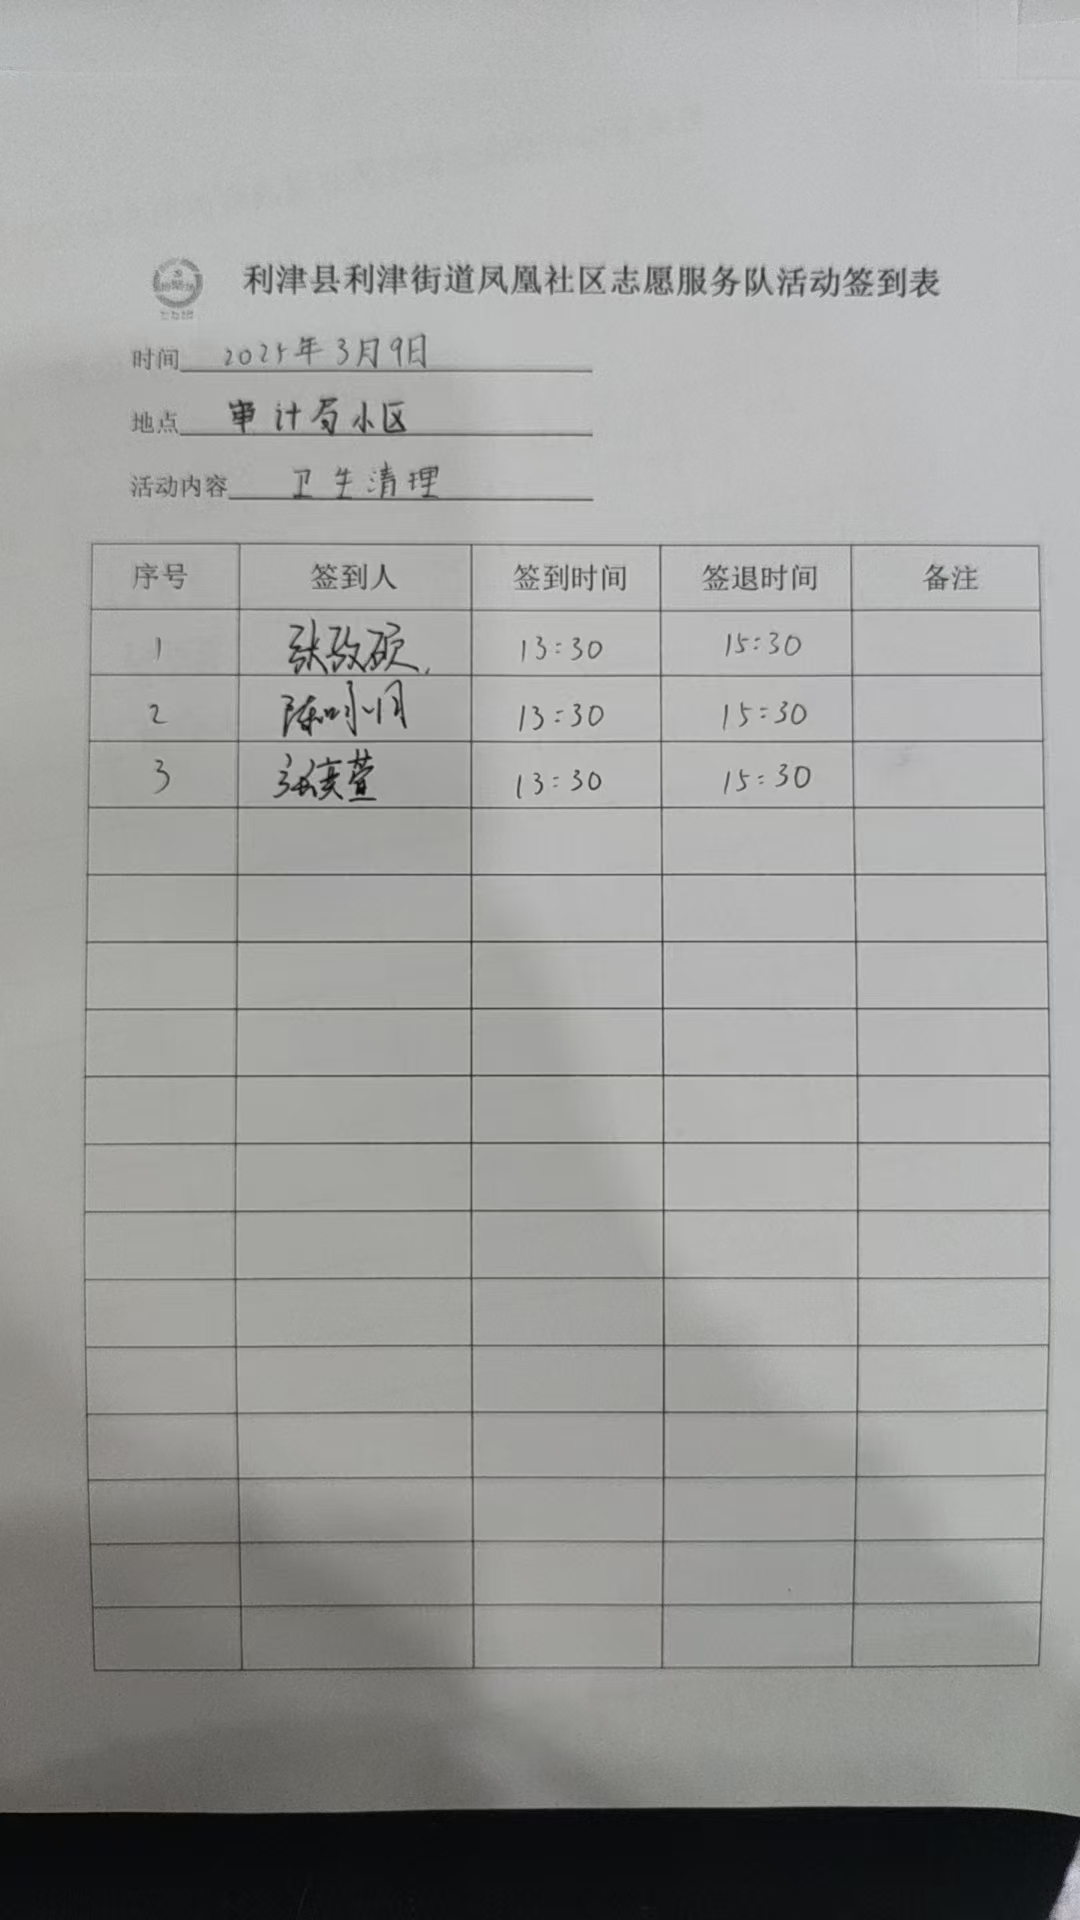 利津县利津街道凤凰社区志愿服务队活动签到表
时间 2025年3月9日
地点 审计局小区
活动内容 卫生清理
序号 签到人 签到时间 签退时间 备注
1 张孜硕 13:30 15:30
2 13:30 15:30
3 张奕萱 13:30 15:30